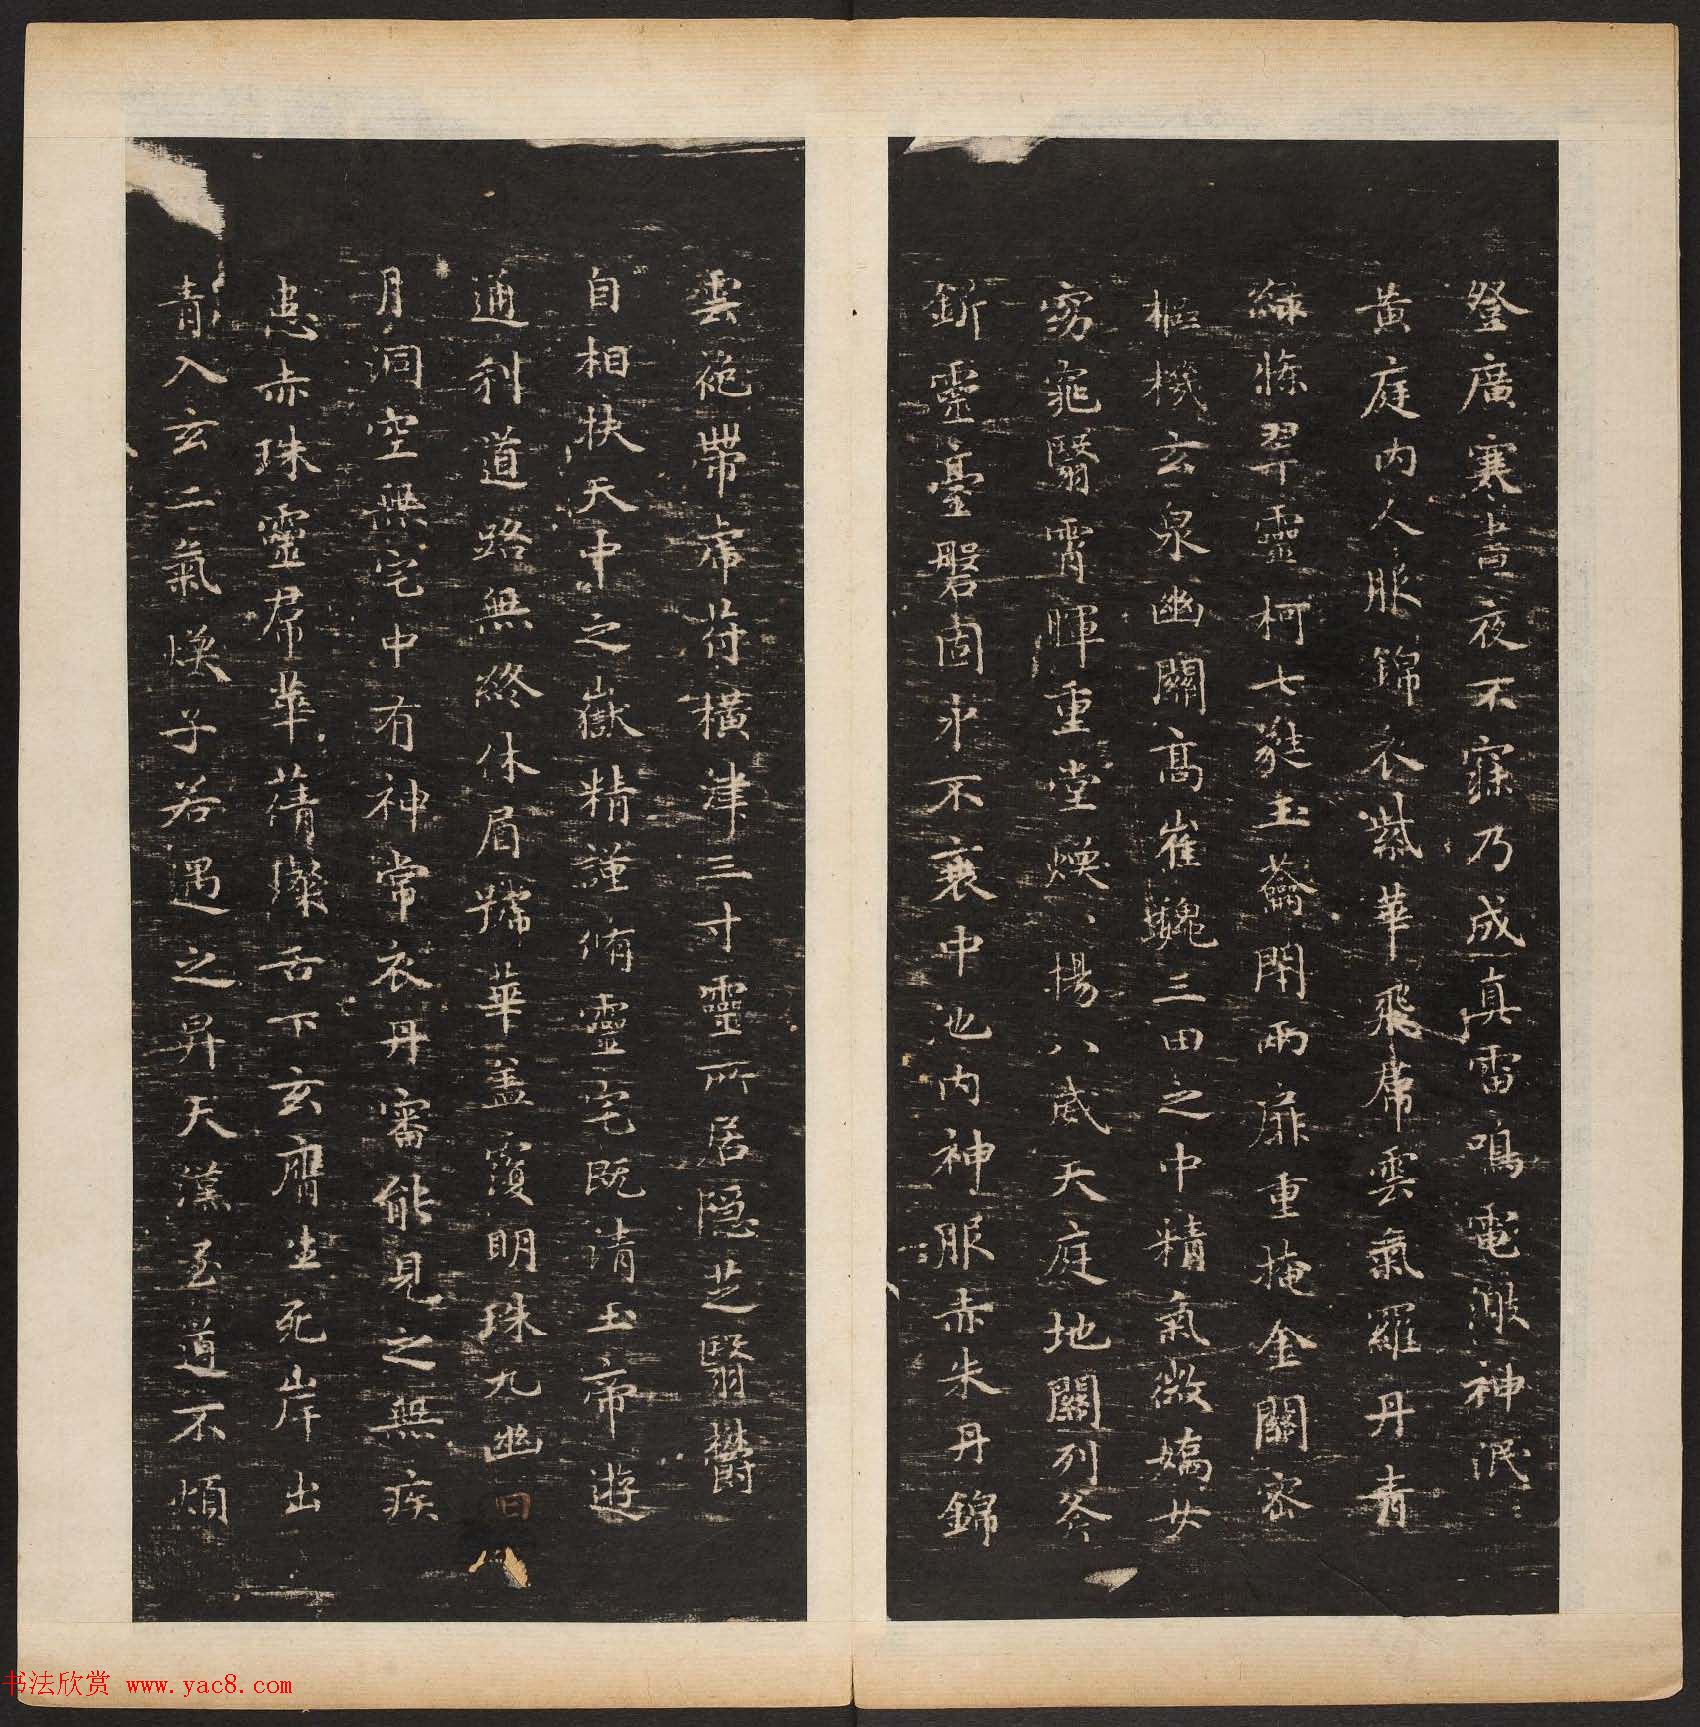 登廣寒晝夜不寐乃成真雷鳴電激神泯〻
黃庭内人服錦衣紫華飛席雲氣羅丹青
綠條翠靈柯七蕤玉籥閉兩扉重掩金關密
樞機玄泉幽關高崔巍三田之中精氣微嬌女
窈窕翳霄暉重堂煥〻揚八威天庭地關列斧
釿靈臺磐固永不衰中池内神服赤朱丹錦
雲袍帶虎符橫津三寸靈所居隱芝翳鬱
自相扶天中之嶽精謹脩靈宅既清玉帝遊
通利道路無終休眉號華蓋覆明珠九幽日
月洞空無宅中有神常衣丹審能見之無疾
患赤珠靈帬華蒨燦舌下玄膺生死岸出
青入玄二氣煥子若遇之昇天漢至道不煩
书法欣赏 www.yac8.com